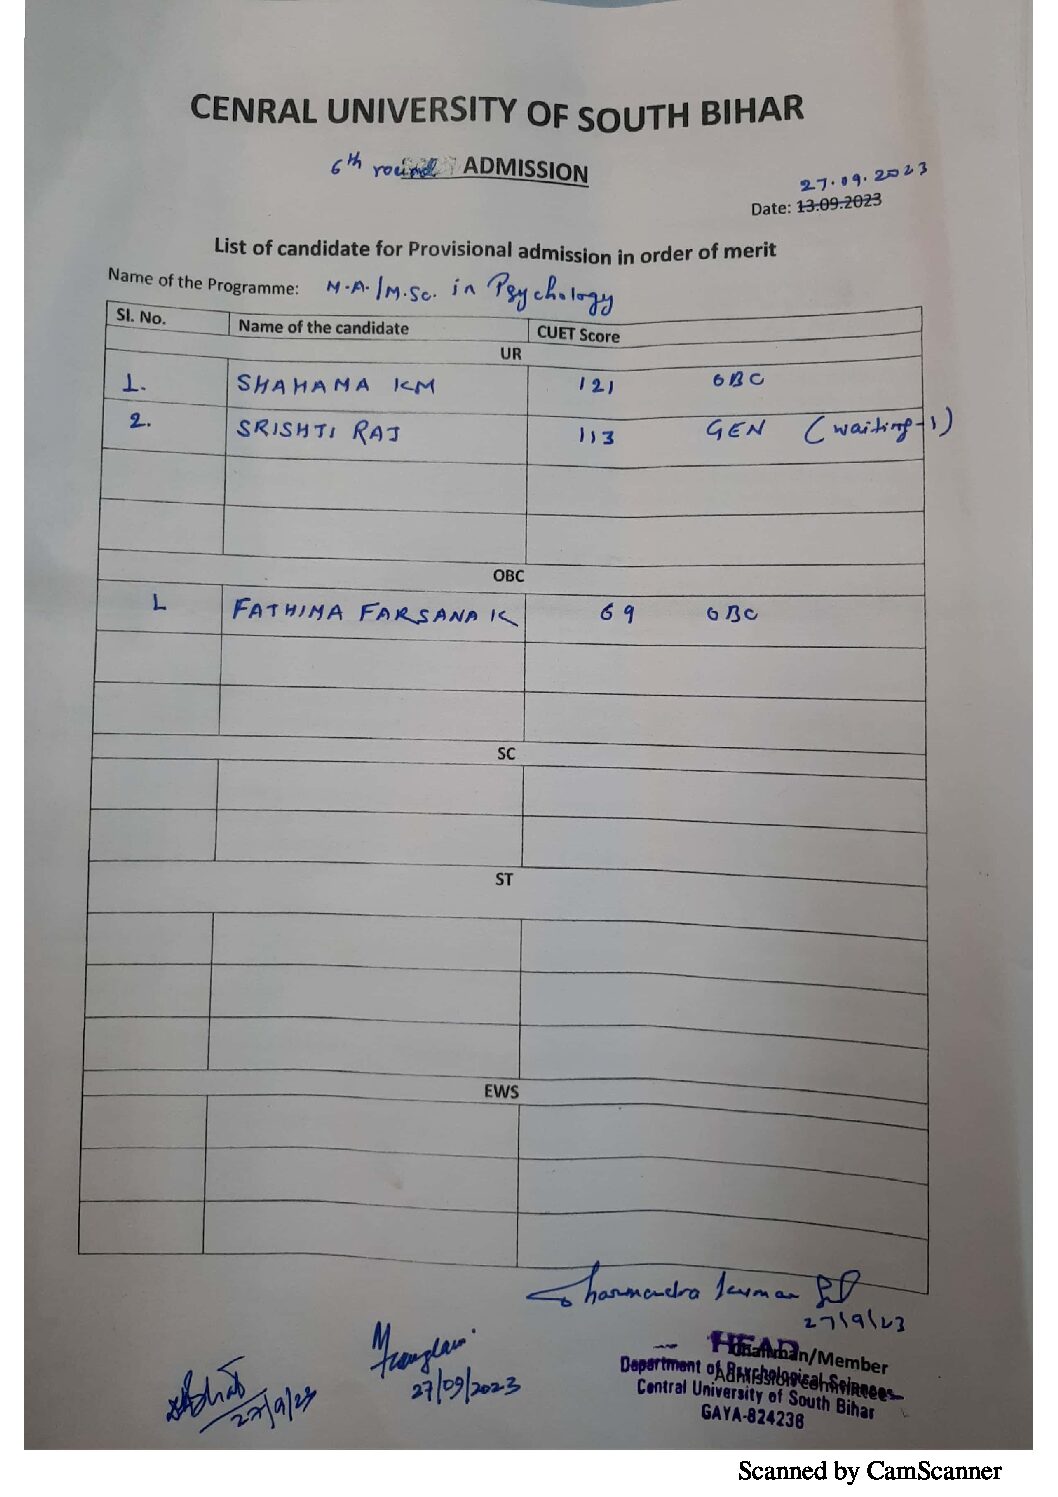 CENRAL UNIVERSITY OF SOUTH BIHAR
6th round ADMISSION
27.09.2023
Date: 13.09.2023
List of candidate for Provisional admission in order of merit
Name of the Programme: M.A./M.Sc. in Psychology
Sl. No. Name of the candidate CUET Score
UR
1. SHAHAMA KM 121 OBC
2. SRISHTI RAJ 113 GEN (waiting-1)
OBC
1 FATHIMA FARSANA K 69 OBC
SC
ST
EWS
Dharmendra Kumar
27/9/23
27/9/23
27/09/2023
HEAD
Chairman/Member
Department of Psychological Sciences
Admission Committee
Central University of South Bihar
GAYA-824236
Scanned by CamScanner